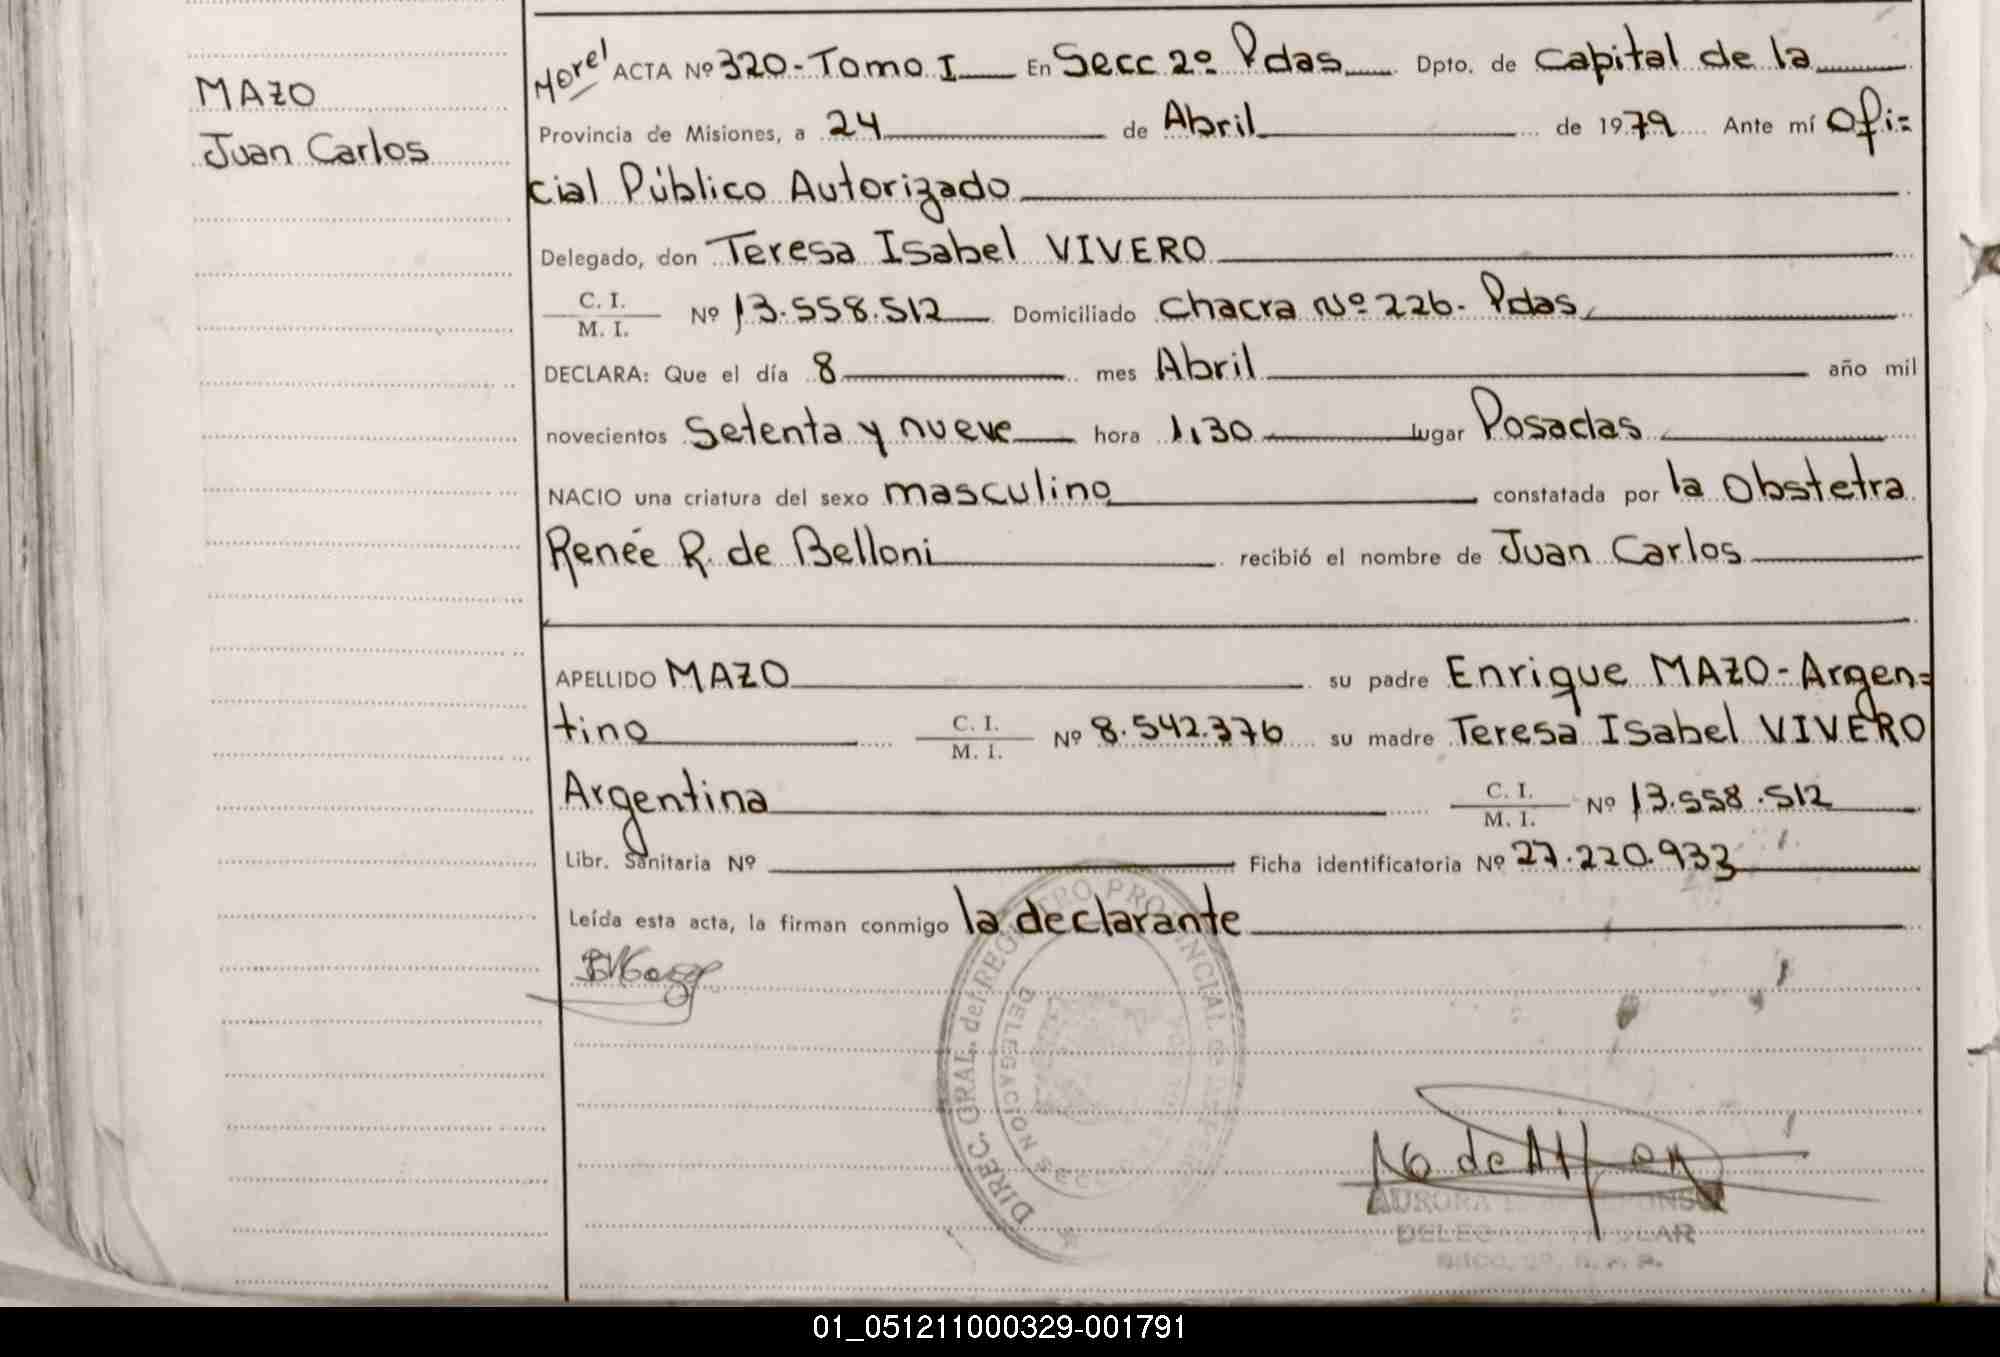 MAZO
Juan Carlos
Morel ACTA Nº 320-Tomo I En Secc 2º Pdas Dpto. de Capital de la
Provincia de Misiones, a 24 de Abril de 1979 Ante mí Ofi=
cial Público Autorizado
Delegado, don Teresa Isabel VIVERO
C. I.
M. I. Nº 13.558.512 Domiciliado Chacra Nº 226- Pdas
DECLARA: Que el día 8 mes Abril año mil
novecientos Setenta y nueve hora 1,30 lugar Posadas
NACIO una criatura del sexo masculino constatada por la Obstetra
Renée R. de Belloni recibió el nombre de Juan Carlos
APELLIDO MAZO su padre Enrique MAZO-Argen=
tino C. I. M. I. Nº 8.542.376 su madre Teresa Isabel VIVERO
Argentina C. I. M. I. Nº 13.558.512
Libr. Sanitaria Nº Ficha identificatoria Nº 27.220.933
Leída esta acta, la firman conmigo la declarante
DIREC. GRAL. del REGISTRO PROVINCIAL de
DELEGACION
AURORA
01_051211000329-001791